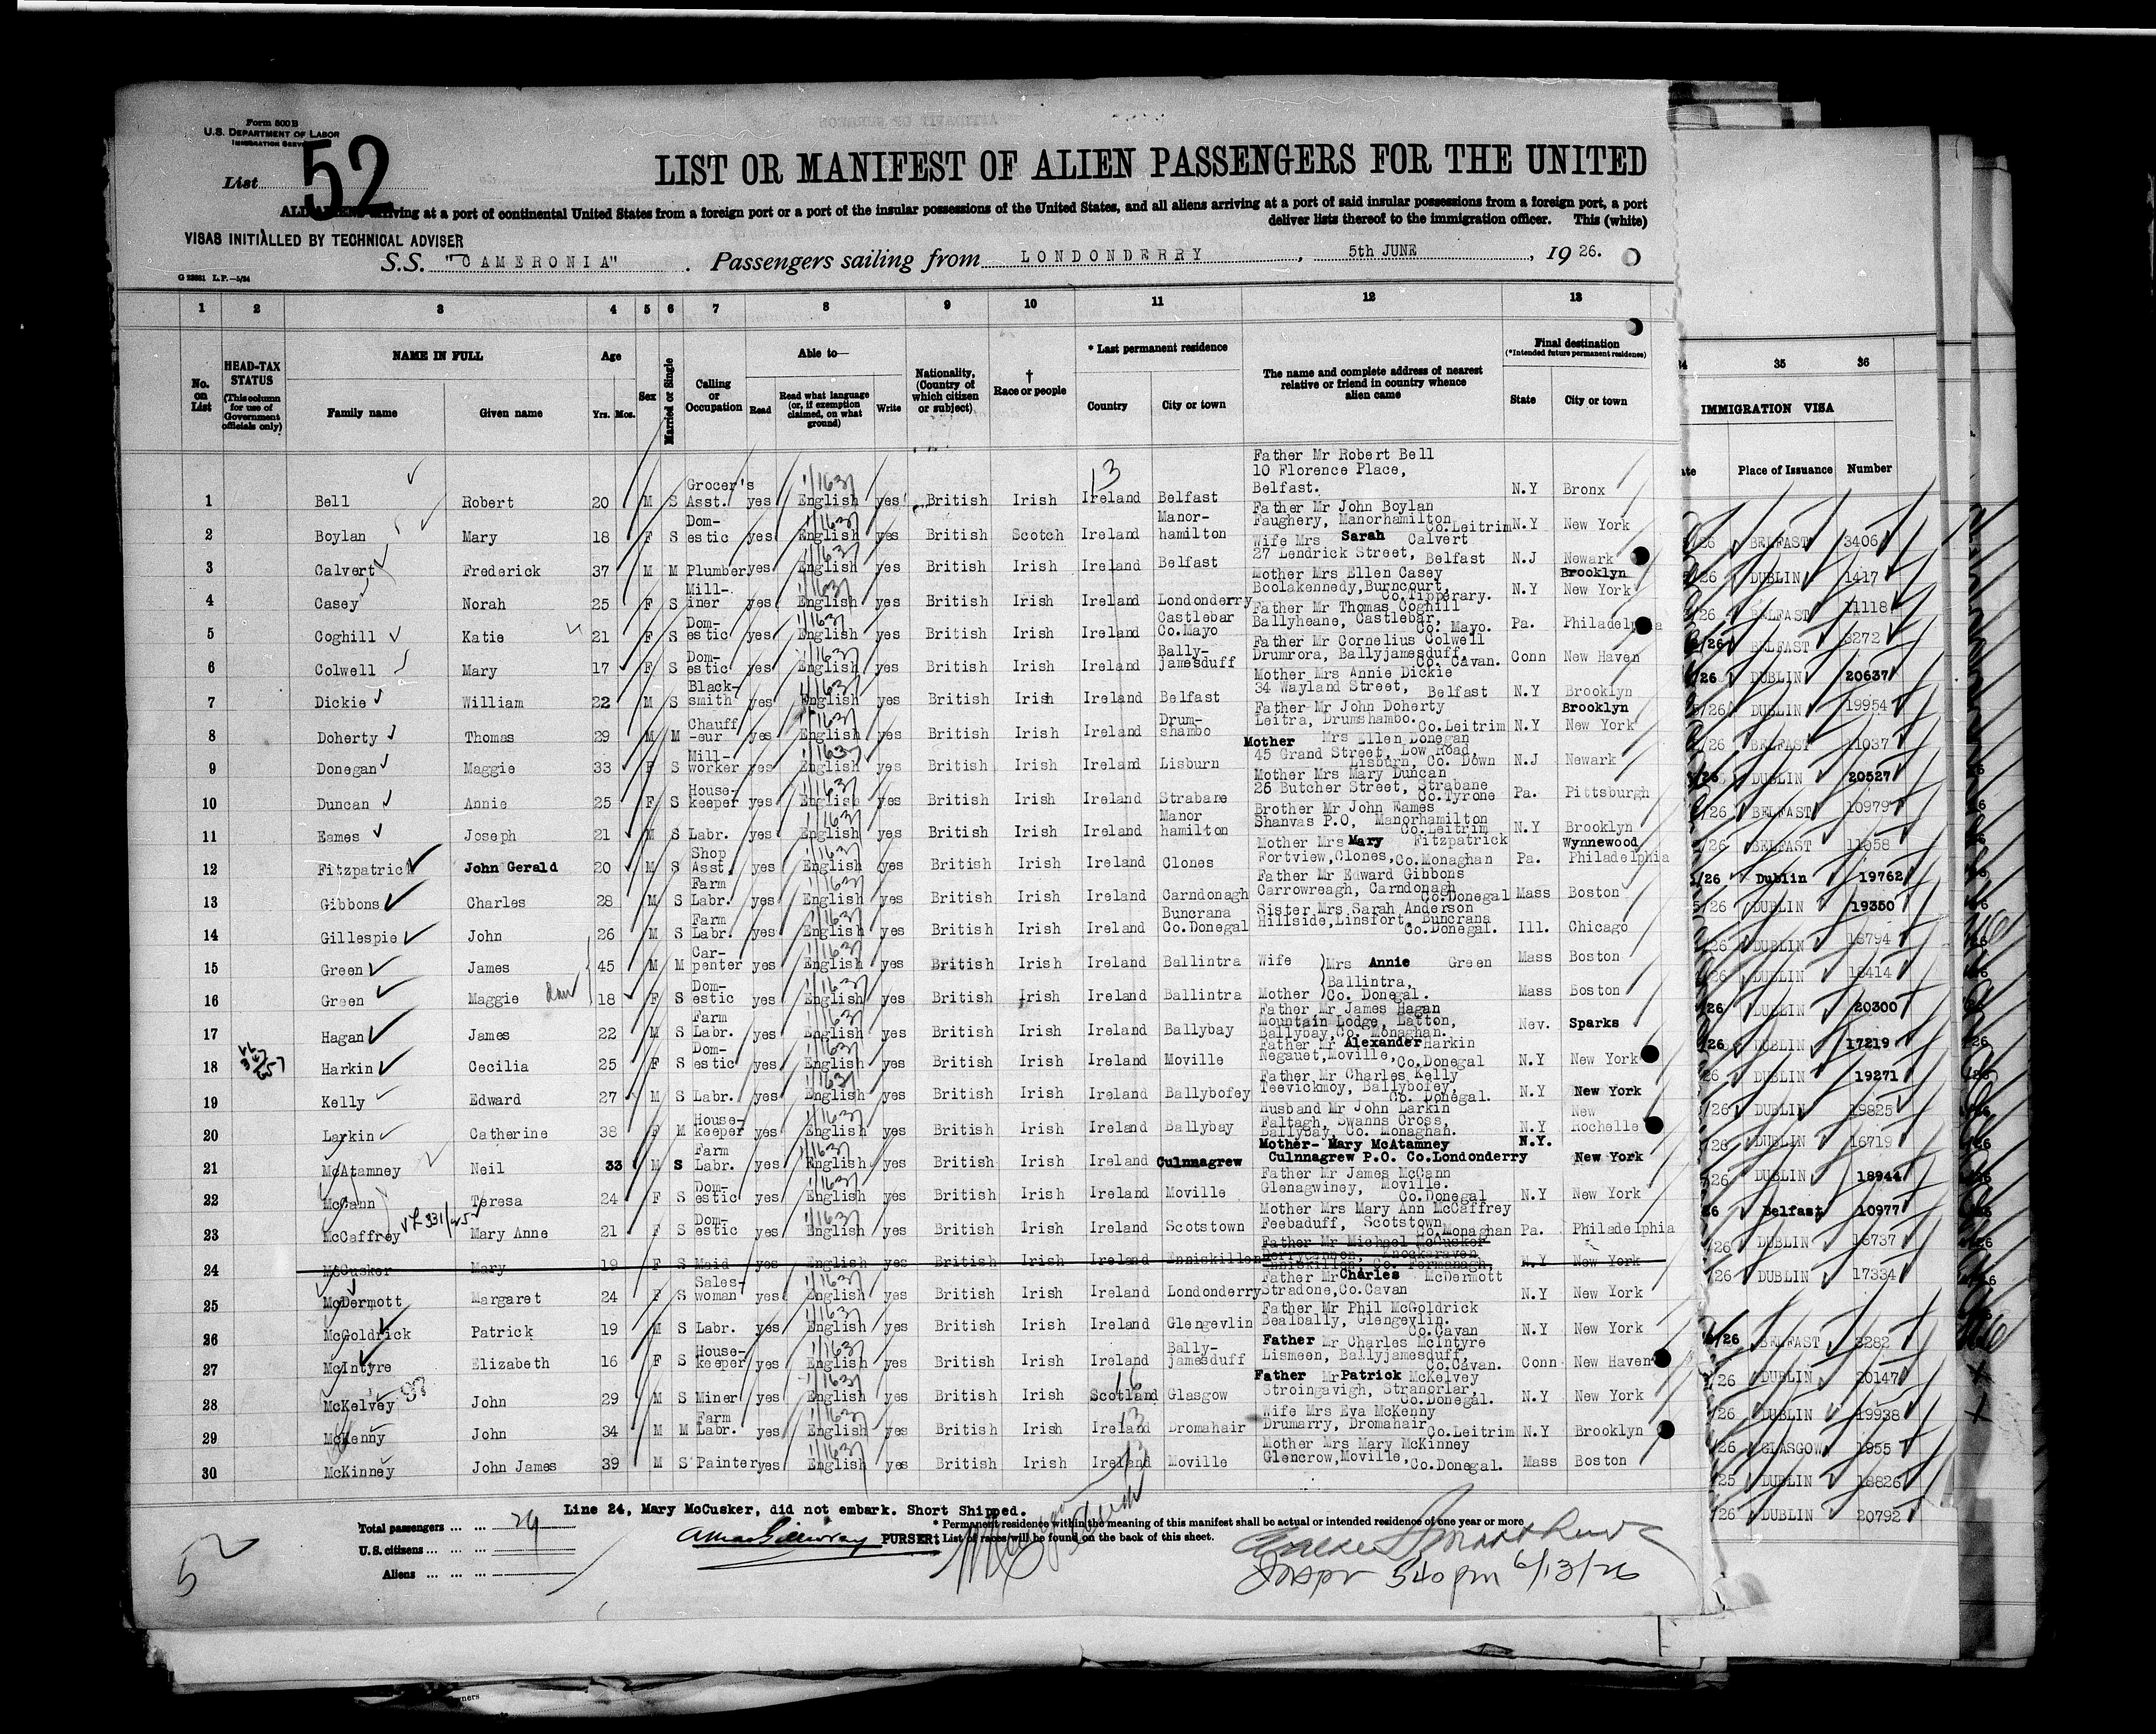 Form 500 B
U. S. DEPARTMENT OF LABOR
IMMIGRATION
List 52
LIST OR MANIFEST OF ALIEN PASSENGERS FOR THE UNITED
ALL ALIENS arriving at a port of continental United States from a foreign port or a port of the insular possessions of the United States, and all aliens arriving at a port of said insular possessions from a foreign port, a port
deliver lists thereof to the immigration officer. This (white)
VISAS INITIALLED BY TECHNICAL ADVISER
S.S. "CAMERONIA". Passengers sailing from LONDONDERRY, 5th JUNE, 1926.
1 2 3 4 5 6 7 8 9 10 11 12 13
No. on List
HEAD-TAX STATUS (This column for use of Government officials only)
NAME IN FULL
Family name Given name
Age Yrs. Mos.
Sex
Married or Single
Calling or Occupation
Able to—
Read Read what language (or, if exemption claimed, on what ground) Write
Nationality, (Country of which citizen or subject)
† Race or people
* Last permanent residence
Country City or town
The name and complete address of nearest relative or friend in country whence alien came
Final destination (*Intended future permanent residence)
State City or town
35 36
IMMIGRATION VISA
Place of Issuance Number
1 Bell Robert 20 M S Grocer's Asst. yes English yes British Irish Ireland Belfast Father Mr Robert Bell 10 Florence Place, Belfast. N.Y Bronx
2 Boylan Mary 18 F S Dom-estic yes English yes British Scotch Ireland Manor-hamilton Father Mr John Boylan Faughery, Manorhamilton Co.Leitrim N.Y New York
3 Calvert Frederick 37 M M Plumber yes English yes British Irish Ireland Belfast Wife Mrs Sarah Calvert 27 Lendrick Street, Belfast N.J Newark
4 Casey Norah 25 F S Mill-iner yes English yes British Irish Ireland Londonderry Mother Mrs Ellen Casey Boolakennedy,Burncourt, Co.Tipperary. N.Y Brooklyn New York
5 Coghill Katie 21 F S Dom-estic yes English yes British Irish Ireland Castlebar Co.Mayo Father Mr Thomas Coghill Ballyheane, Castlebar, Co. Mayo. Pa. Philadelphia
6 Colwell Mary 17 F S Dom-estic yes English yes British Irish Ireland Bally-jamesduff Father Mr Cornelius Colwell Drumrora, Ballyjamesduff, Co. Cavan. Conn New Haven
7 Dickie William 22 M S Black-smith yes English yes British Irish Ireland Belfast Mother Mrs Annie Dickie 34 Wayland Street, Belfast N.Y Brooklyn
8 Doherty Thomas 29 M M Chauff-eur yes English yes British Irish Ireland Drum-shambo Father Mr John Doherty Leitra, Drumshambo. Co.Leitrim N.Y Brooklyn New York
9 Donegan Maggie 33 F S Mill-worker yes English yes British Irish Ireland Lisburn Mother Mrs Ellen Donegan 45 Grand Street, Low Road, Lisburn, Co. Down N.J Newark
10 Duncan Annie 25 F S House-keeper yes English yes British Irish Ireland Strabane Mother Mrs Mary Duncan 26 Butcher Street, Strabane Co.Tyrone Pa. Pittsburgh
11 Eames Joseph 21 M S Labr. yes English yes British Irish Ireland Manor hamilton Brother Mr John Eames Shanvas P.O, Manorhamilton Co.Leitrim N.Y Brooklyn
12 Fitzpatrick John Gerald 20 M S Shop Asst. yes English yes British Irish Ireland Clones Mother Mrs Mary Fitzpatrick Fortview,Clones,Co.Monaghan Pa. Wynnewood Philadelphia
13 Gibbons Charles 28 M S Farm Labr. yes English yes British Irish Ireland Carndonagh Father Mr Edward Gibbons Carrowreagh, Carndonagh Co.Donegal Mass Boston
14 Gillespie John 26 M S Farm Labr. yes English yes British Irish Ireland Buncrana Co.Donegal Sister Mrs Sarah Anderson Hillside,Linsfort, Buncrana Co.Donegal. Ill. Chicago
15 Green James 45 M M Car-penter yes English yes British Irish Ireland Ballintra Wife Mrs Annie Green Mass Boston
16 Green Maggie 18 F S Dom-estic yes English yes British Irish Ireland Ballintra Mother Ballintra, Co. Donegal. Mass Boston
17 Hagan James 22 M S Farm Labr. yes English yes British Irish Ireland Ballybay Father Mr James Hagan Mountain Lodge, Latton, Ballybay,Co. Monaghan. Nev. Sparks
18 Harkin Cecilia 25 F S Dom-estic yes English yes British Irish Ireland Moville Father Mr Alexander Harkin Negauet,Moville,Co.Donegal N.Y New York
19 Kelly Edward 27 M S Labr. yes English yes British Irish Ireland Ballybofey Father Mr Charles Kelly Teevickmoy, Ballybofey, Co. Donegal. N.Y New York
20 Larkin Catherine 38 F M House-keeper yes English yes British Irish Ireland Ballybay Husband Mr John Larkin Faltagh, Swanns Cross, Ballybay, Co. Monaghan. N.Y New Rochelle
21 McAtamney Neil 33 M S Farm Labr. yes English yes British Irish Ireland Culnnagrew Mother- Mary McAtamney Culnnagrew P.O. Co.Londonderry N.Y. New York
22 McCann Teresa 24 F S Dom-estic yes English yes British Irish Ireland Moville Father Mr James McCann Glenagwiney, Moville. Co.Donegal N.Y New York
23 McCaffrey Mary Anne 21 F S Dom-estic yes English yes British Irish Ireland Scotstown Mother Mrs Mary Ann McCaffrey Feebaduff, Scotstown, Co.Monaghan Pa. Philadelphia
24 McCusker Mary 19 F S Maid yes English yes British Irish Ireland Enniskillen Father Mr Michael McCusker Derrycannon, Knockaraven Enniskillen, Co. Fermanagh, N.Y New York
25 McDermott Margaret 24 F S Sales-woman yes English yes British Irish Ireland Londonderry Father Mr Charles McDermott Stradone,Co.Cavan N.Y New York
26 McGoldrick Patrick 19 M S Labr. yes English yes British Irish Ireland Glengevlin Father Mr Phil McGoldrick Bealbally, Glengevlin. Co.Cavan N.Y New York
27 McIntyre Elizabeth 16 F S House-keeper yes English yes British Irish Ireland Bally-jamesduff Father Mr Charles McIntyre Lismeen, Ballyjamesduff, Co.Cavan. Conn New Haven
28 McKelvey John 29 M S Miner yes English yes British Irish Scotland Glasgow Father Mr Patrick McKelvey Stroingavigh, Stranorlar, Co.Donegal. N.Y New York
29 McKenny John 34 M M Farm Labr. yes English yes British Irish Ireland Dromahair Wife Mrs Eva McKenny Drumarry, Dromahair Co.Leitrim N.Y Brooklyn
30 McKinney John James 39 M S Painter yes English yes British Irish Ireland Moville Mother Mrs Mary McKinney Glencrow,Moville,Co.Donegal. Mass Boston
/26 BELFAST 3406
/26 DUBLIN 1417
/26 BELFAST 11118
/26 BELFAST 3272
/26 DUBLIN 20637
/26 DUBLIN 19954
/26 BELFAST 11037
/26 DUBLIN 20527
/26 BELFAST 10979
/26 BELFAST 11058
/26 Dublin 19762
/26 DUBLIN 19350
/26 DUBLIN 18794
/26 DUBLIN 18414
/26 DUBLIN 20300
/26 DUBLIN 17219
/26 DUBLIN 19271
/26 DUBLIN 19825
/26 DUBLIN 16719
/26 DUBLIN 18944
/26 Belfast 10977
/26 DUBLIN 18737
/26 DUBLIN 17334
/26 BELFAST 3282
/26 DUBLIN 20147
/26 DUBLIN 19938
/26 GLASGOW 1955
/25 DUBLIN 18826
/26 DUBLIN 20792
Line 24, Mary McCusker, did not embark. Short Shipped.
Total passengers ... ... 29
U.S. citizens ... ... ...
Aliens ... ... ...
PURSER:
* Permanent residence within the meaning of this manifest shall be actual or intended residence of one year or more
† List of races will be found on the back of this sheet.
Inspr 540 pm 6/13/26
52